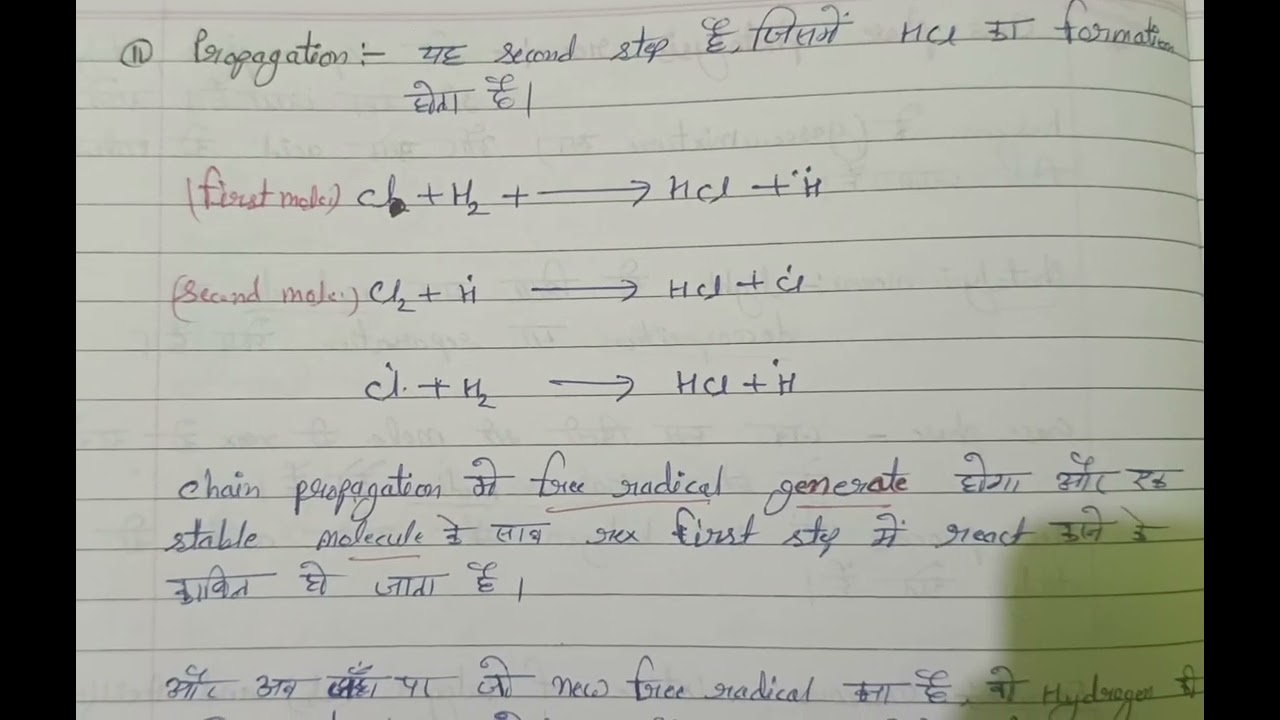 (ii) Propagation:- यह second step है, जिसमें HCl का formation
होता है।
(first mole.) Cl + H₂ + ⟶ HCl + Ḣ
(second mole.) Cl₂ + Ḣ ⟶ HCl + Ċl
Ċl. + H₂ ⟶ HCl + Ḣ
chain propagation में free radical generate होगा और एक
stable molecule के साथ first step में react करने के
काबिल हो जाता है।
और अब पर जो new free radical बना है, वो Hydrogen